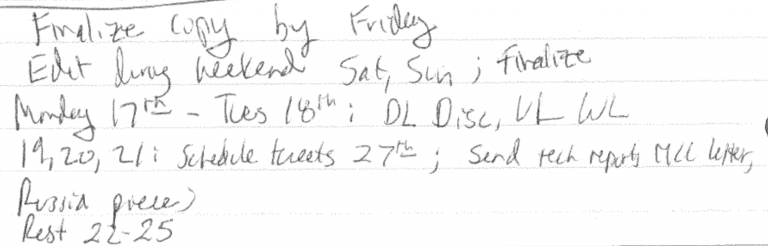 Finalize copy by Friday
Edit during weekend Sat, Sun ; Finalize
Monday 17th - Tues 18th : DL Disc, VL WL
19, 20, 21 : Schedule tweets 27th ; Send tech reports MCC letter,
Russia piece)
Rest 22-25